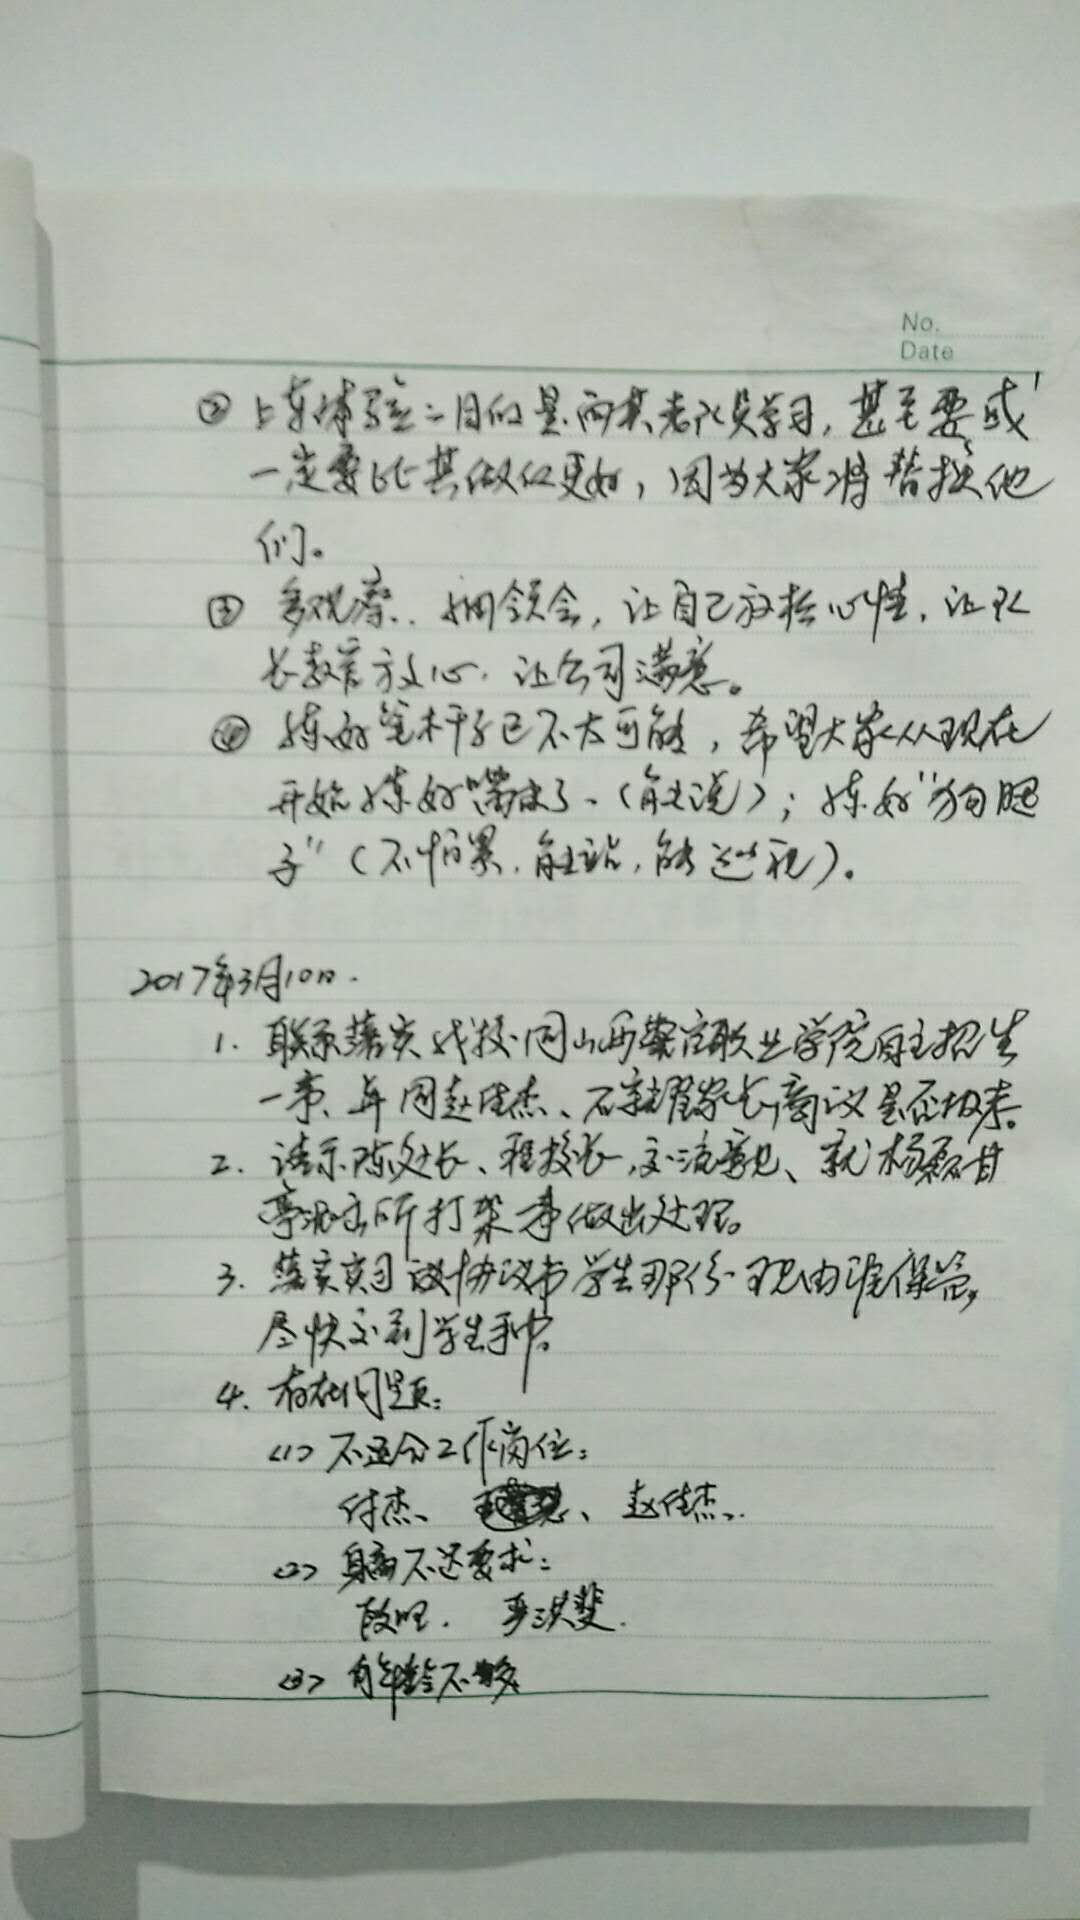 No.
Date
② 上车体验二目的是向其老队员学习,甚至要或
一定要比其做仅更好,因为大家将替换他
们。
③ 多观察、细领会,让自己放松心性,让队
长教官放心,让公司满意。
④ 练好笔杆子已不太可能,希望大家从现在
开始练好"嘴皮子"(能说);练好"狗腿
子"(不怕累,能站,能巡视)。
2017年3月10日.
1. 联系落实我校同山西警官职业学院自主招生
一事、并同赵佳杰、石家长商议是否报考。
2. 请示陈处长、程校长,交流意见、就杨磊甘
亭派出所打架一事做出处理。
3. 落实实习协议书学生那份现由谁保管,
尽快交到学生手中。
4. 存在问题:
<1> 不适合工作岗位:
付杰、 、赵佳杰.
<2> 身高不达要求:
段旺. 洪斐.
<3> 年龄不够